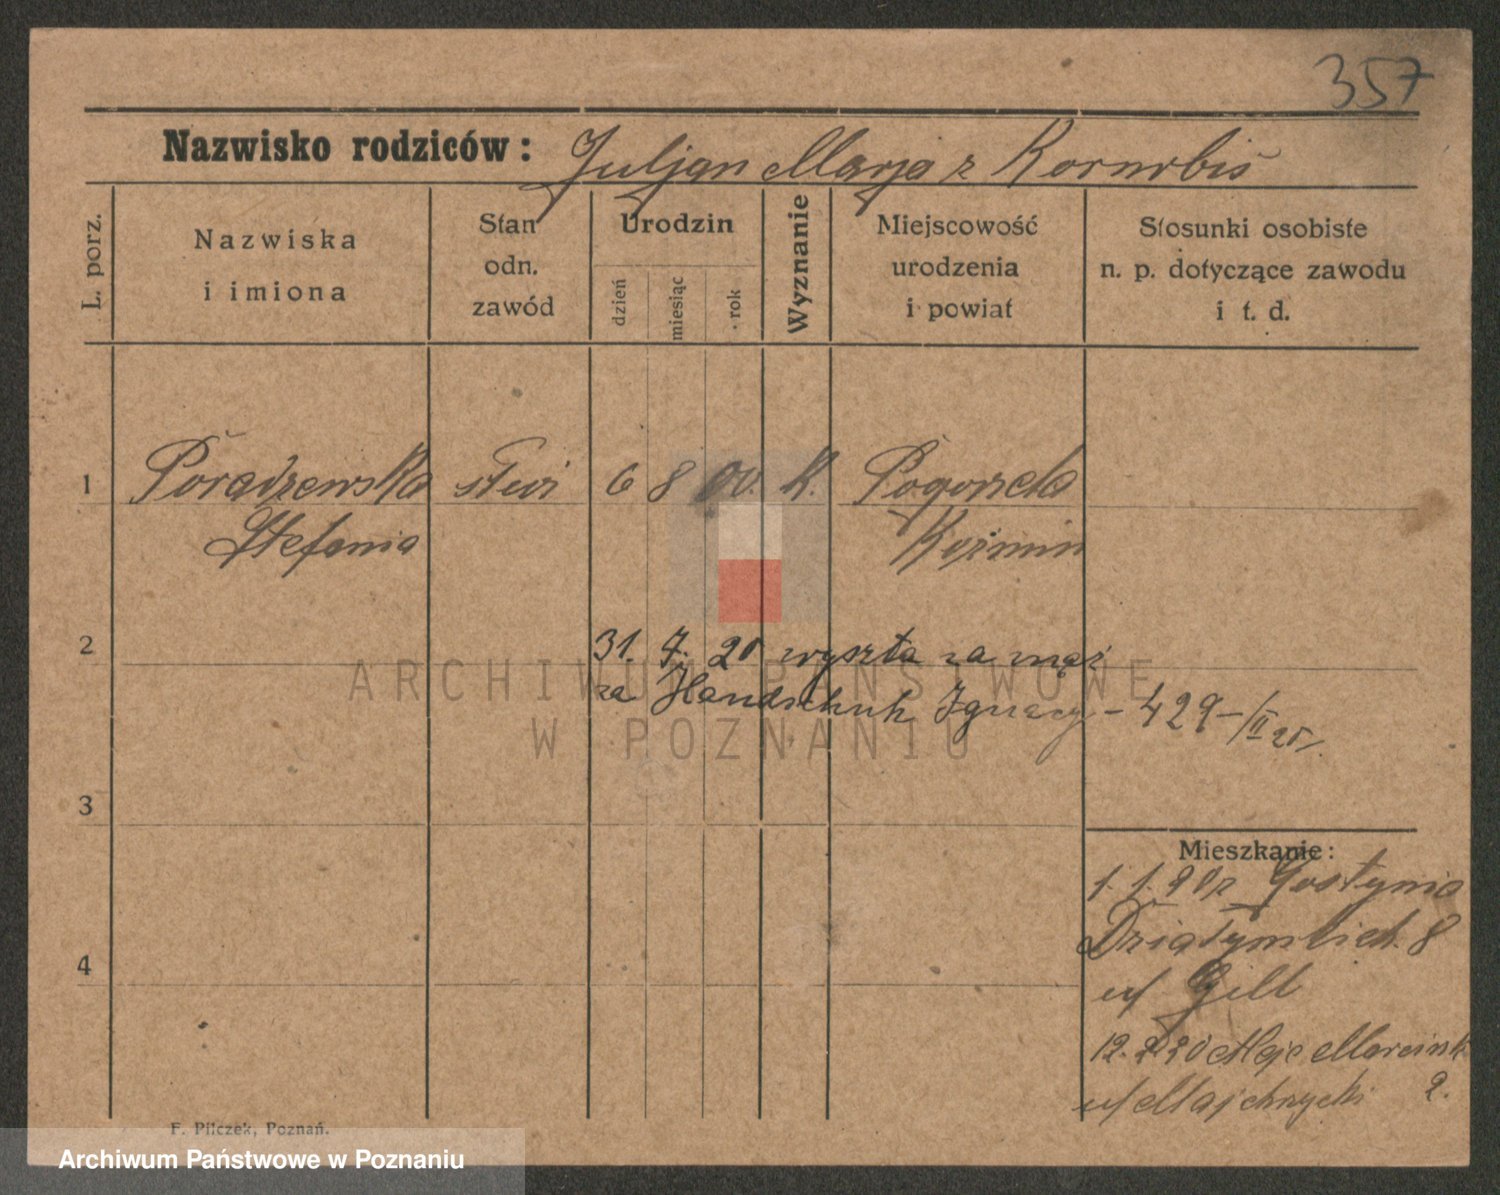 357
Nazwisko rodziców: Juljan Marja z
L. porz.
Nazwiska
i imiona
Stan
odn.
zawód
Urodzin
dzień
miesiąc
rok
Wyznanie
Miejscowość
urodzenia
i powiat
Stosunki osobiste
n. p. dotyczące zawodu
i t. d.
1 Poradzewska 6 8 00. K. Pogorzela
Stefania Koźmin
2 31. 7. 20 wyszła za mąż
za Handschuh Ignacy – 429 –/II
ARCHIWUM PAŃSTWOWE
W POZNANIU
3
Mieszkanie:
1. 1. 20 z Gostynia
8
4
u/ Gill
12. Aleje Marcink.
u/ Majchrzycki 2.
F. Pilczek, Poznań.
Archiwum Państwowe w Poznaniu